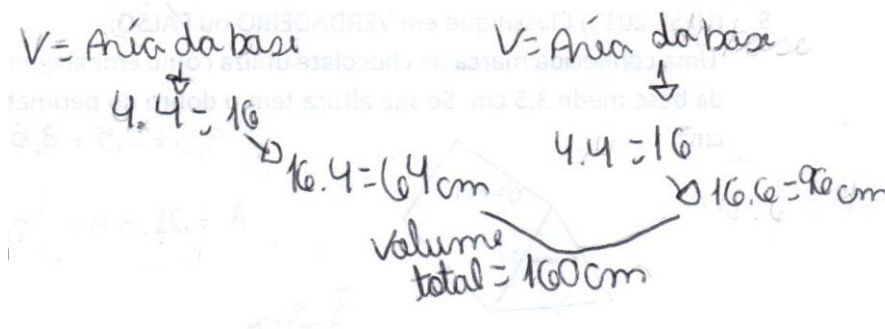 V = Ária da base
4.4 = 16
16.4 = 64 cm
V = Área da base
4.4 = 16
16.6 = 96 cm
Volume
total = 160 cm